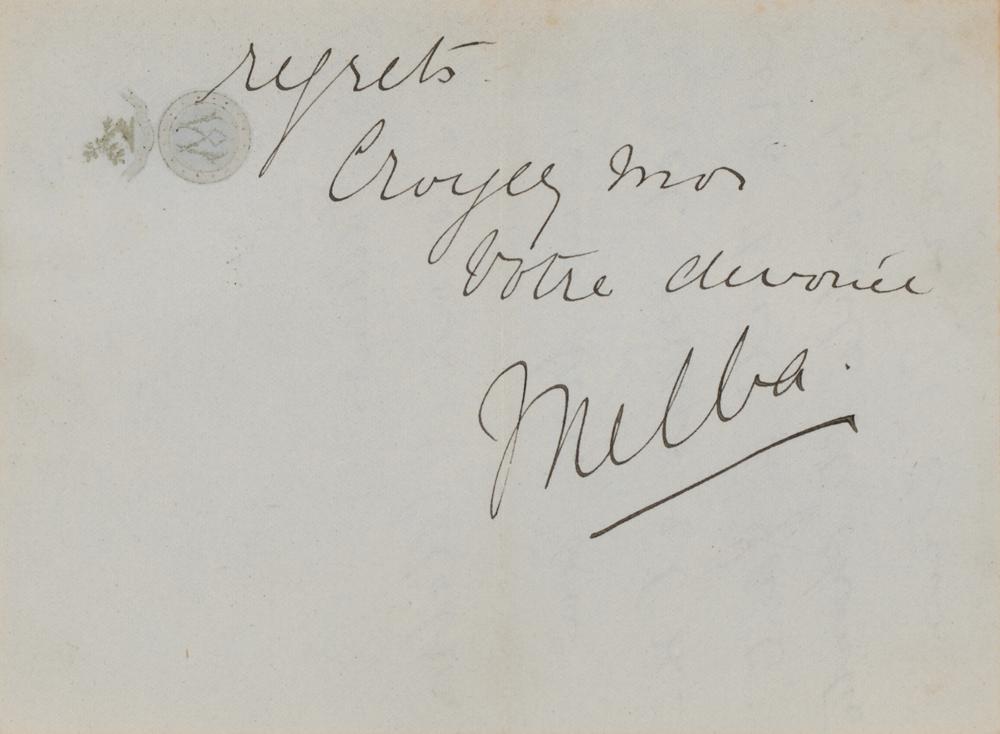 regrets.
Croyez moi
Votre devouée
Melba.